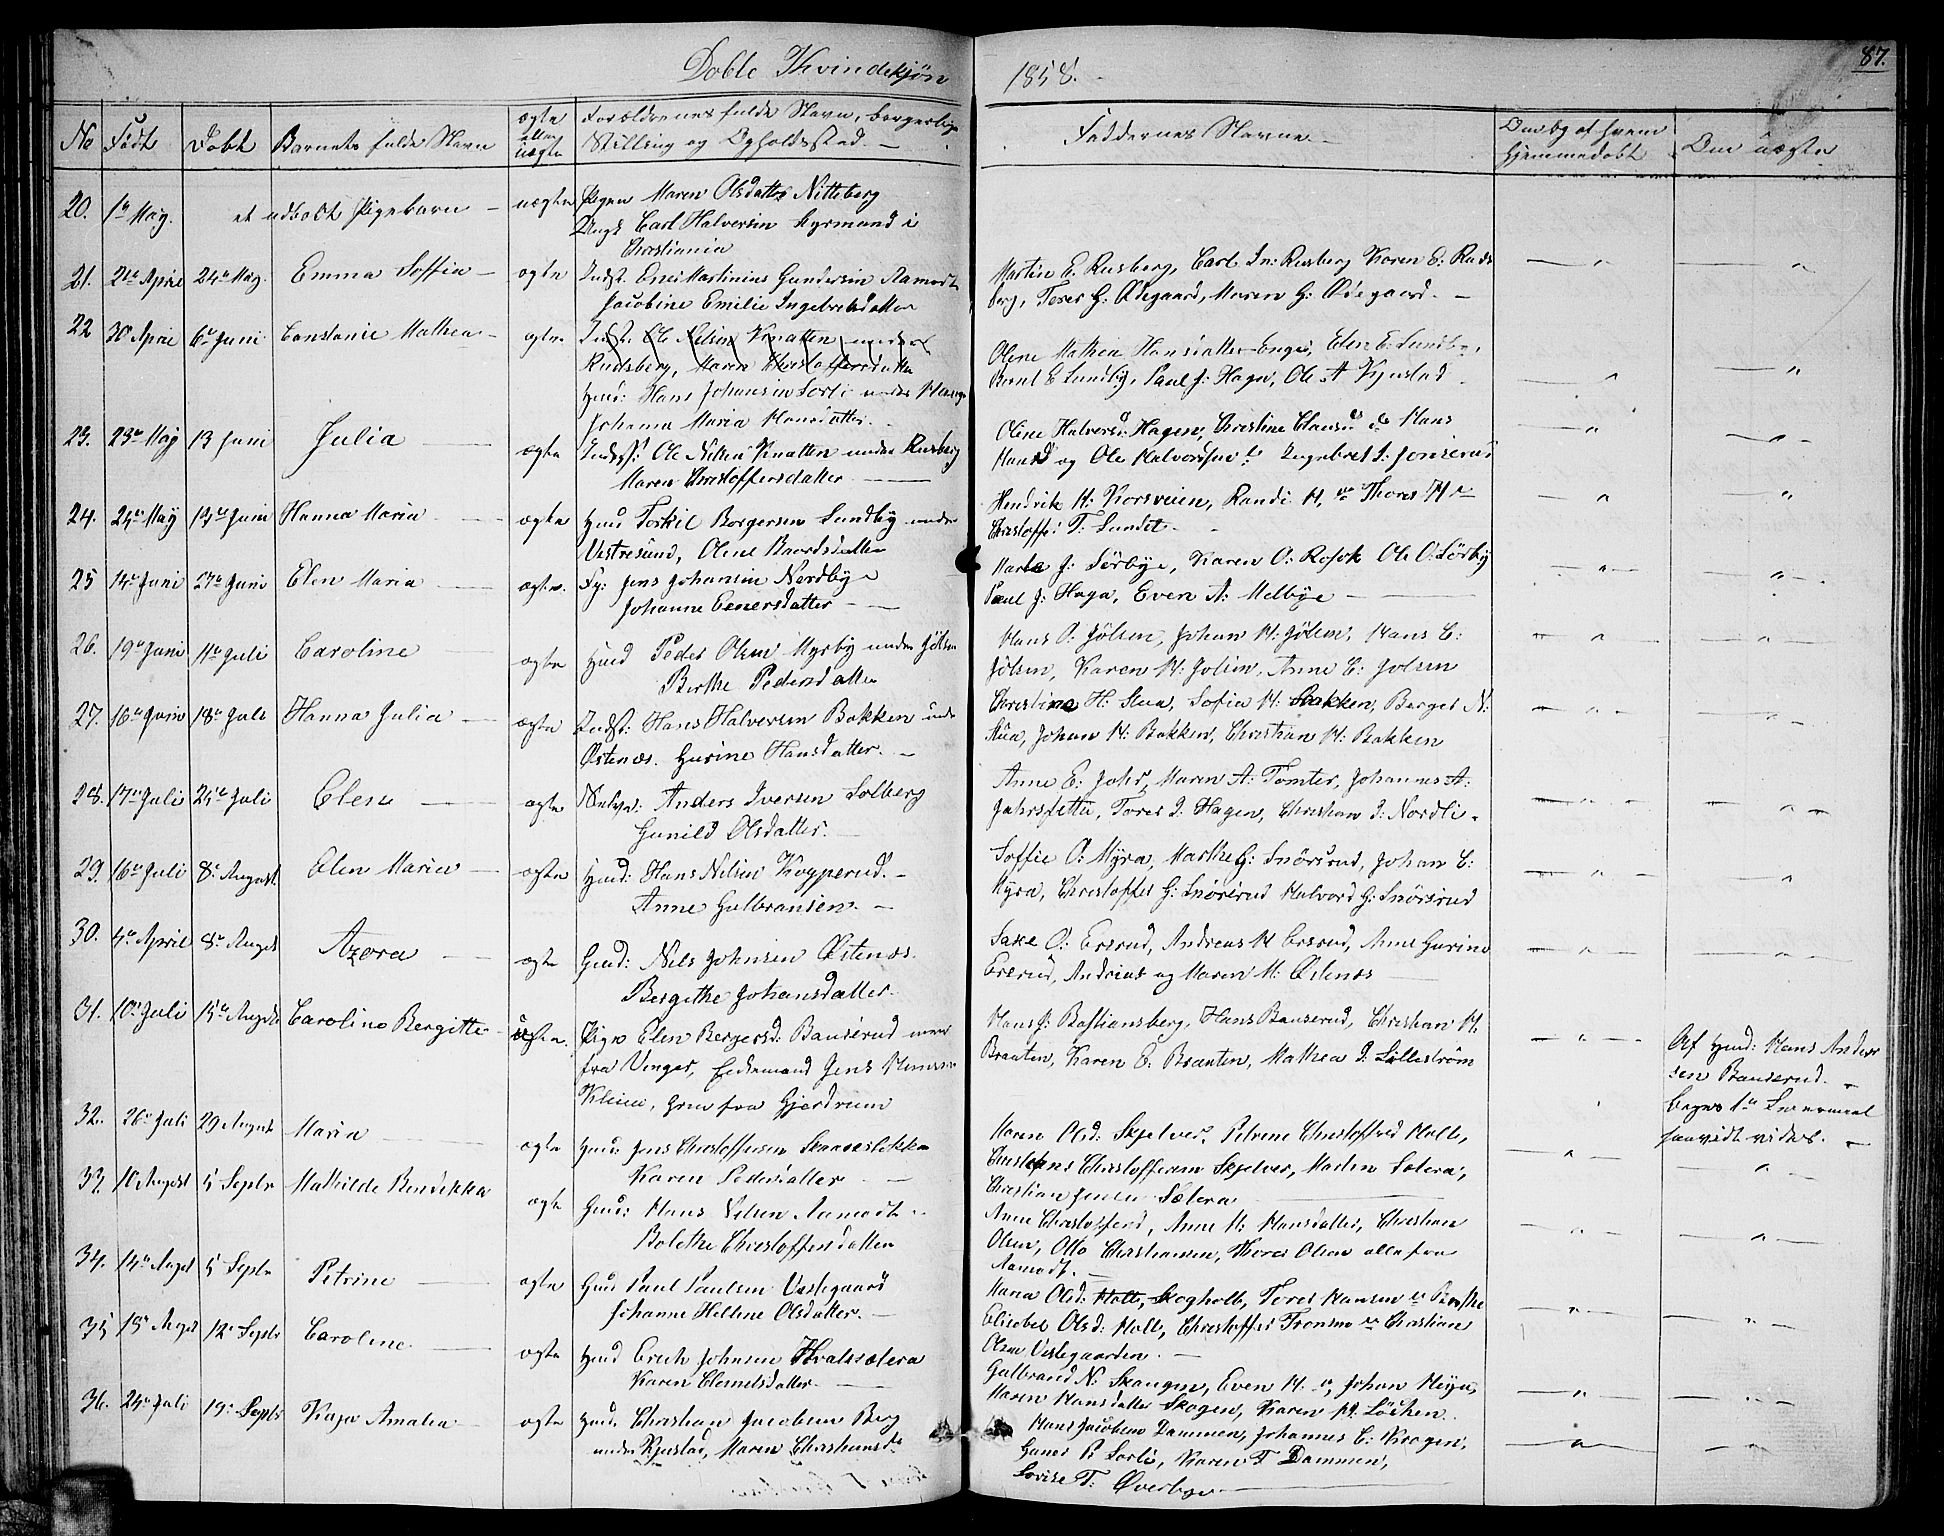 Døbte Kvindekjøn 1858. 87.
No Født Døbt Barnets fulde Navn ægte eller uægte Forældrenes fulde Navn, borgerlige Stilling og Opholdssted. Faddernes Navne Om og af hvem hjemmedøbt Om uægte
20. 1de May. et udøbt Pigebarn uægte Pigen Maren Olsdatter Nitteberg
Ungk Carl Halversen Myrmund i
Christiania
21. 21de April 24de May. Emma Soffia ogte Indst. Martinius Gundersen Aamodt
Jacobine Emilie Ingebretsdatter
Martin E. Rusberg, Carl In: Rusberg Karen E: Ruds
berg, Torer G. Ødegaard, Maren G: Ødegaard.
22 30 April 6te Juni Constanie Mathea ogte Indst. Ole Nilsen Knatten under
Rudsberg, Maren Christoffersdatter
Huud: Hans Johansen Sorli under Hauge
Johanna Maria Hansdatter.
Olene Mathea Hansdatter Enge, Elen E. Lundby,
Bernt E Lundby, Paul J: Hagn, Ole A Kjustad
23. 23de May 13 Juni Julia ogte Indst: Ole Nilsen Knatten under Rusberg
Maren Christoffersdatter
Olene Halversd: Hagen, Christine Clausd do Hans
Hansd og Ole Halvorsen Ingebret J: Jonserud
24. 24de May 13de Juni Hanna Maria ogte Huud Torkil Borgersen Sundby under
Vestresund, Olene Baardsdatter
Hendrik H: Korsveien, Randi H, Thorer H
Christoffer T: Sundet
25 14de Juni 27de Juni Elen Maria ogte. Jens Johansen Nordbye
Johanne Eenersdatter
Marte J: Sørbye, Karen O: Rosok Ole O: Sørby
Paul J: Haga, Even A: Melbye
26. 19de Juni 11te Juli Caroline ogte Huud Peder Olsen Myrby under Jølsen
Berthe Pedersdatter
Hans O: Jølsen, Johan H: Jølsen, Hans C:
Jølsen, Karen H: Jolsen, Anne C: Jolsen
27. 16de Juni 18de Juli Hanna Julia ogte Indst: Hans Halversen Bakken und
Østenæs. Gurine Hansdatter.
Christine H: Stua, Sofia H: Bakken, Berget N:
Stua, Johan H: Bakken, Christian H: Bakken
28. 17de Juli 25de Juli Elen ogte Anders Iversen Solberg
Gunild Olsdatter.
Anne E. Jahr, Maren A: Tomter, Johannes A:
Jahrsfette, Torer J: Hagen, Christian J: Nordli
29. 16de Juli 8de August. Elen Maria ogte Huud: Hans Nilsen Kopperud.
Anne Gulbransen.
Soffie O: Myra, Marthe G: Snørsrud, Johan C:
Myra, Christoffer G: Snørsrud Halvord G: Snørsrud
30. 4de April 8de Augst Azora ogte Gaud: Nils Johnsen Østenæs.
Bergithe Johansdatter.
Saxe O: Ersrud, Andreas H Ersrud, Anne Gurine
Ersrud, Andreas og Maren M: Østenæs
31. 10de Juli 15de Augst Caroline Bergitte uægte. Pige Elen Bergersd: Bauserud
fra Vinger, Jens Hansen
Kleiva, fra Gjerdrum
Hans J: Bastiansberg, Hans Bauserud, Christian H.
Braaten, Karen E. Braaten, Mathea J: Lillestrøm
Af Huud: Hans Ander
sen Bauserud.
begges 1te Leiermaal
saavidt vides.
32. 26de Juli 29 August Maria ogte Huud: Jens Christoffersen Skanseløkka
Karen Pedersdatter
Maren Olsd: Skjelver, Petrine Christoffersd Holt,
Christoffersen Skjelver, Maden Sætera,
Christian Jensen Sætera
33. 10 August 5 Septr Mathilde Bendikka ogte Gaud: Hans Nilsen Aamodt
Bolethe Christoffersdatter
Anne Christoffersd, Anne H: Hansdatter, Christian
Olsen, Otto Christiansen, Thorer Olsen alle fra
Aamodt.
34. 14de Augst 5 Septr Petrine ogte Huud Paul Paulsen Vestegaard
Johanne Hellene Olsdatter.
Maria Olsd: Holt, Skogholt, Torer Hansen
Elisebet Olsd: Holt, Christoffer Christian
Olsen Vestegaarden.
35 15de Augst 12te Septr Caroline ogte Huud Erich Johnsen Kvalssætera
Karen Clemetsdatter
Gulbrand N: Skaugen, Even H. Johan
Maren Hansdatter Skogen, Karen H: Løcken.
36. 24de Juli 19: Septr Kaja Amalia ogte Huud. Christian Jacobsen Berg
under Kjustad, Maren Christiansd.
Hans Jacobsen Dammen, Johannes C: Krogen,
P. Sorli, Karen T Dammen,
Lovise T. Øverbye